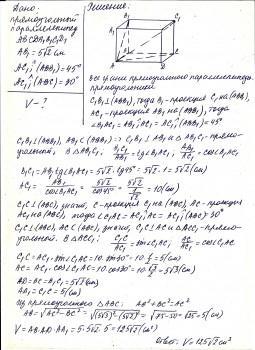 Дано:
прямоугольный
параллелепипед
ABCDA₁B₁C₁D₁
AB₁ = 5√2 см
AC₁^(ABB₁) = 45°
AC₁^(ABC) = 30°
V - ?
Решение:
Все грани прямоугольного параллелепипеда
прямоугольники
C₁B₁⊥(ABB₁), тогда B₁ - проекция C₁ на (ABB₁),
AC₁ - проекция AB₁ на (ABB₁), тогда
∠B₁AC₁ = AB₁^AC₁ = AC₁^(ABB₁) = 45°
C₁B₁⊥(ABB₁), AB₁⊂(ABB₁) ⇒ C₁B₁⊥AB₁ и △AB₁C₁ - прямо-
угольный, В △AB₁C₁: C₁B₁/AB₁ = tg∠B₁AC₁, AB₁/AC₁ = cos∠B₁AC₁
B₁C₁ = AB₁·tg∠B₁AC₁ = 5√2·tg45° = 5√2·1 = 5√2 (см)
AC₁ = AB₁/cos∠B₁AC₁ = 5√2/cos45° = 10 (см)
C₁C⊥(ABC), значит, C - проекция C₁ на (ABC), AC - проекция
AC₁ на (ABC), тогда ∠C₁AC = AC₁^AC = AC₁^(ABC) = 30°
C₁C⊥(ABC), AC⊂(ABC), значит, C₁C⊥AC и △ACC₁ - прямо-
угольный. В △ACC₁: C₁C/AC₁ = sin∠C₁AC, AC/AC₁ = cos∠C₁AC
C₁C = AC₁·sin∠C₁AC = 10·sin30° = 10·1/2 = 5 (см)
AC = AC₁·cos∠C₁AC = 10·cos30° = 10·√3/2 = 5√3 (см)
AD = BC = B₁C₁ = 5√2 (см)
AA₁ = C₁C = 5 (см)
Из прямоугольного △ABC: AB² + BC² = AC²
AB = √(AC² - BC²) = √((5√3)² - (5√2)²) = √(75 - 50) = √25 = 5 (см)
V = AB·AD·AA₁ = 5·5√2·5 = 125√2 (см³)
Ответ: V = 125√2 см³